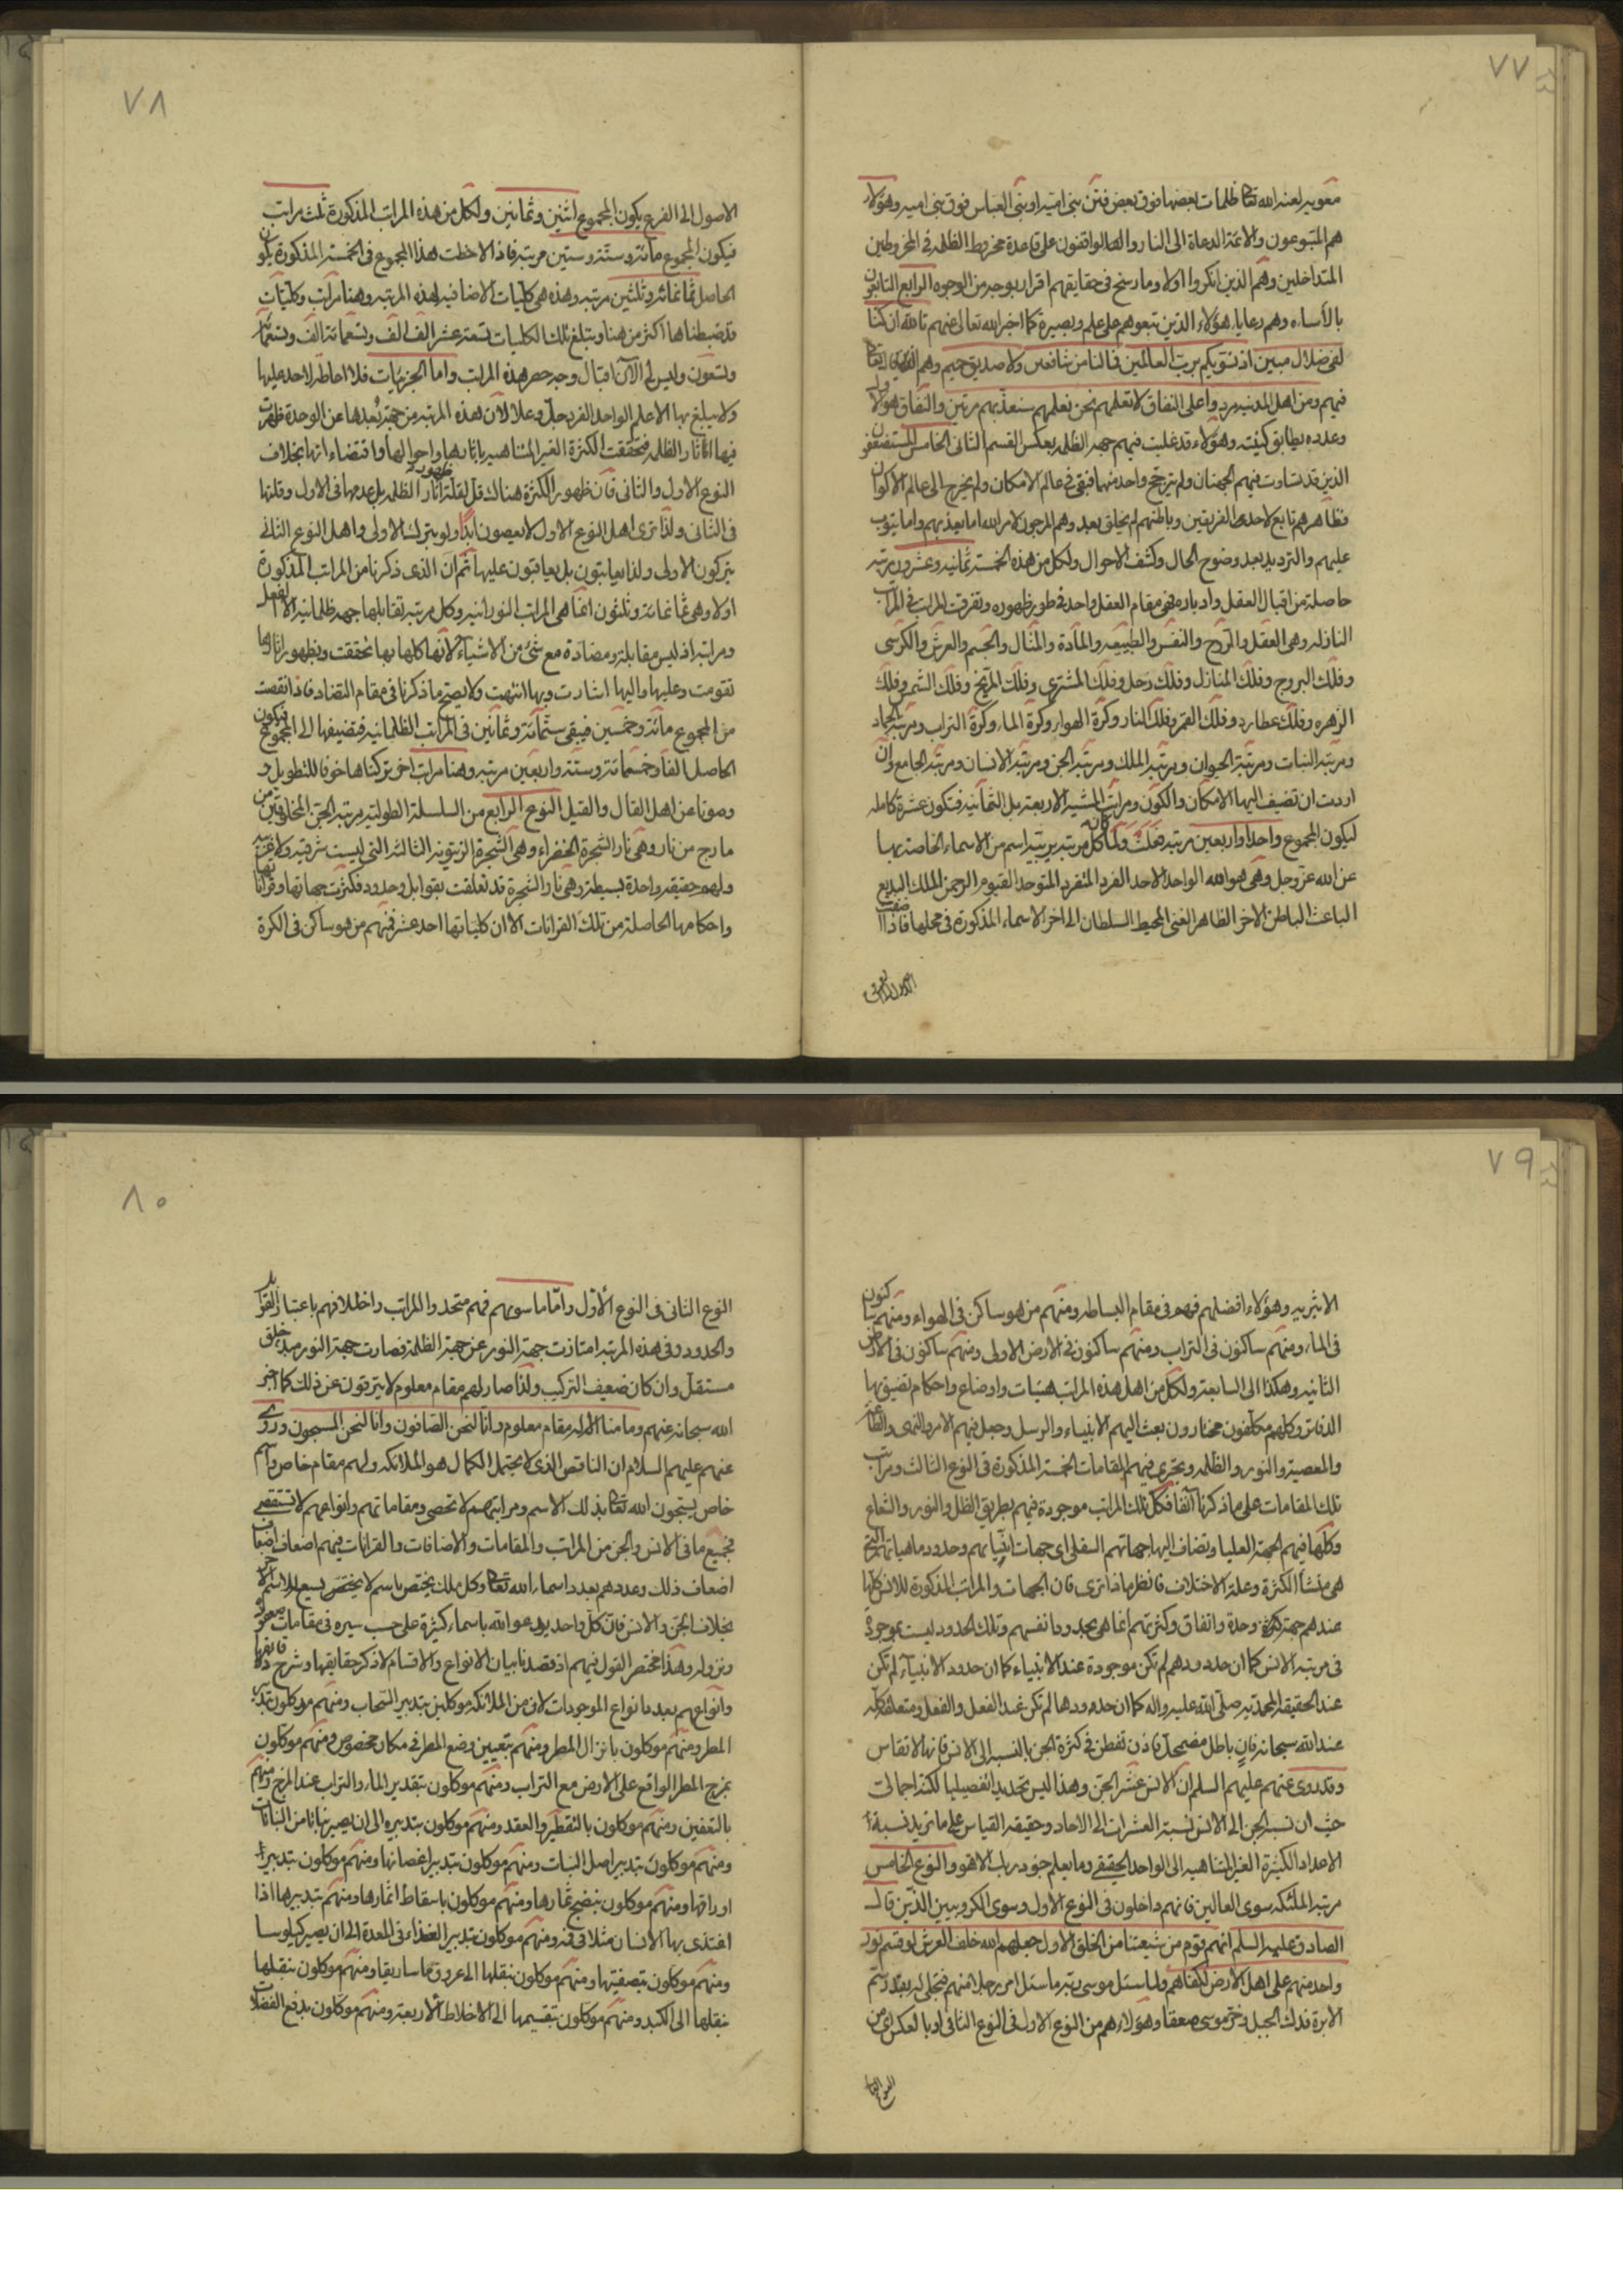 ٧٧
معوية لعنه الله تعا ظلمات بعضها فوق بعض فتن بنى امية او بنى العباس فوق بنى امية وهؤلاء
هم المتبوعون والائمة الدعاة الى النار والها لواقفون على قاعدة مخروط الظلمة فى المخروطين
المتداخلين وهم الذين انكروا اولا وما رسخ فى حقايقهم اقرار بوجه من الوجوه الرابع التابعون
بالأساءه وهم رعايا هؤلاء الذين تبعوهم على علم وبصيرة كما اخبر الله تعالى عنهم تالله ان كنا
لفى ضلال مبين اذ نسويكم برب العالمين فما لنا من شافعين ولا صديق حميم وهم الذين قال تعا
فيهم ومن اهل المدينة مردوا على النفاق لا تعلمهم نحن نعلمهم سنعذبهم مرتين والنفاق هولاء
وعدده يطابق كينته وهؤلاء قد غلبت فيهم جهة الظلمة بعكس القسم الثانى الخامس المستضعفون
الذين قد تساوت فيهم الجهتان ولم يترجح واحد منهما فبقى فى عالم الامكان ولم يخرج الى عالم الاكوان
فظاهرهم تابع لاحدى الفريقين وباطنهم لم يخلق بعد وهم المرجون لامر الله اما يعذبهم واما يتوب
عليهم والترديد بعد وضوح الحال وكشف الاحوال ولكل من هذه الخمسة ثمانية وعشرون مرتبة
حاصلة من اقبال العقل وادباره فهى مقام العقل واحد فى طور ظهوره وتفرقت المراتب فى المراتب
النازلة وهى العقل والروح والنفس والطبيعة والمادة والمثال والجسم والعرش والكرسى
وفلك البروج وفلك المنازل وفلك زحل وفلك المشترى وفلك المريخ وفلك الشمس وفلك
الزهره وفلك عطارد وفلك القمر وفلك النار وكرة الهواء وكرة الماء وكرة التراب ومرتبة الجماد
ومرتبة النبات ومرتبة الحيوان ومرتبة الملك ومرتبة الجن ومرتبة الانسان ومرتبة الجامع وان
اردت ان تضيف اليها الامكان والكون ومراتب المشية الاربعة بل الثمانية فتكون عشرة كاملة
ليكون المجموع واحدا واربعين مرتبة ولما كان كل مرتبة يربيه اسم من الاسماء الخاصة بها
عن الله عز وجل وهى هو الله الواحد الاحد الفرد المتفرد المتوحد القيوم الرحمن الملك البديع
الباعث الباطن الاخر الظاهر الغنى المحيط السلطان الى اخر الاسماء المذكورة فى محلها فاذا اضفت
٧٨
الاصول الى الفرع يكون المجموع اثنين وثمانين ولكل من هذه المراتب المذكورة ثلث مراتب
فيكون المجموع مائة وستة وستين مرتبة فاذا لاحظت هذا المجموع فى الخمسة المذكورة يكون
الحاصل ثمانمائة وثلثين مرتبة وهذه هى كليات الاضافية لهذه المرتبة وهنا مراتب وكليات
قد ضبطناها اكثر من هنا ويبلغ تلك الكليات تسعة عشر الف الف وتسعمائة الف وتسعمائة
وتسعون وليس لى الآن اقبال وجه حصر هذه المراتب واما الجزئيات فلا احاطة لاحد عليها
ولا يبلغ بها الا علم الواحد الفرد جل وعلا لان هذه المرتبة من جهة بُعدها عن الوحدة ظهرت
فيها آثار الظلمة فتحققت الكثرة الغير المتناهية باثارها واحوالها واقتضاءاتها بخلاف
النوع الاول والثانى فان ظهور الكثرة هناك قل لقلة ظهور آثار الظلمة بل عدمها فى الاول وقلتها
فى الثانى ولذا ترى اهل النوع الاول لا يعصون ابدًا ولو بترك الاولى واهل النوع الثانى
يتركون الاولى ولذا يعاتبون بل يعاقبون عليها ثم ان الذى ذكرنا من المراتب المذكورة
اولا وهى ثمانمائة وثلثون انما هى المراتب النورانية وكل مرتبة تقابلها جهة ظلمانية الا العقل
ومراتبه اذ ليس مقابلة ومضادة مع شئ من الاشياء لانها كلها بها تحققت وبظهور اثارها
تقومت وعليها واليها اشارت وبها انتهت ولا يصح ما ذكرنا فى مقام التضاد فاذا نقصت
من المجموع مائة وخمسين فيبقى ستمائة وثمانين فى المراتب الظلمانية فتضيفها الى المجموع فيكون
الحاصل الفا وخمسمائة وستة واربعين مرتبة وهنا مراتب اخر تركناها خوفا للتطويل و
وصونا عن اهل القال والقيل النوع الرابع من السلسلة الطولية مرتبة الجن المخلوقين من
مارج من نار وهى نار الشجرة الخضراء وهى الشجرة الزيتونة الثالثة التى ليست شرقية ولا غربية
ولهم حقيقة واحدة بسيطة وهى نار الشجرة قد تعلقت بقوابل وحدود فكثرت جهاتها وقراناتها
واحكامها الحاصلة من تلك القرانات الا ان كلياتها احد عشر فمنهم من هو ساكن فى الكرة
٧٩
الاثيرية وهؤلاء افضلهم فهم فى مقام البساطة ومنهم من هو ساكن فى الهواء ومنهم ساكنون
فى الماء ومنهم ساكنون فى التراب ومنهم ساكنون فى الارض الاولى ومنهم ساكنون فى الارض
الثانية وهكذا الى السابعة ولكل من اهل هذه المراتب هيئات واوضاع واحكام تضيق بها
الدفاتر وكلهم مكلفون مختارون بعث اليهم الانبياء والرسل وجعل فيهم الامر والنهى والطاعة
والمعصية والنور والظلمة ويجرى فيهم المقامات الخمسة المذكورة فى النوع الثالث ومراتب
تلك المقامات على ما ذكرنا آنفا فكل تلك المراتب موجودة فيهم بطريق الظل والنور والشعاع
وكلها فيهم الجهة العليا وتضاف اليها جهاتهم السفلى اى جهات انياتهم وحدود ماهياتهم التى
هى منشأ الكثرة وعلة الاختلاف فانظر ماذا ترى فان الجهات والمراتب المذكورة للانس كلها
عندهم جهة وحدة واتفاق وكثرتهم انما هى بحدود انفسهم وتلك الحدود ليست بموجودة
فى مرتبة الانس كما ان حدودهم لم تكن موجودة عند الانبياء كما ان حدود الانبياء لم تكن
عند الحقيقة المحمدية صلى الله عليه واله كما ان حدودها لم تكن عند الفعل والفعل ومتعلقه كله
عند الله سبحانه فان باطل مضمحل فاذن تفطن فى كثرة الجن بالنسبة الى الانس فانها لا تقاس
وقد روى عنهم عليهم السلم ان الانس عشر الجن وهذا ليس تحديدا تفصيليا لكنه اجمالى
حيث ان نسبة الجن الى الانس نسبة العشرات الى الاحاد وحقيقة القياس على ما تريد نسبة
الاعداد الكثيرة الغير المتناهية الى الواحد الحقيقى وما يعلم جنود ربك الا هو والنوع الخامس
مرتبة الملئكة سوى العالين فانهم داخلون فى النوع الاول وسوى الكروبيين الذين قال
الصادق عليه السلم انهم قوم من شيعتنا من الخلق الاول جعلهم الله خلف العرش لو قسم نور
واحد منهم على اهل الارض لكفاهم ولما سئل موسى ربه ما سئل امر رجلا منهم فتجلى له بقدر سم
الابرة فدك الجبل وخر موسى صعقا وهؤلاء هم من النوع الاول فى النوع الثانى او بالعكس اى من
٨٠
النوع الثانى فى النوع الأول وامّا ما سويهم فهم متحدوا المراتب واختلافهم باعتبار القوابل
والحدود وفى هذه المرتبة امتازت جهة النور عن جهة الظلمة فصارت جهة النور مبدء خلق
مستقل وان كان ضعيف التركيب ولذا صار لهم مقام معلوم لا يترقون عن ذلك كما اخبر
الله سبحانه عنهم وما منا الا له مقام معلوم وانا لنحن الصافون وانا لنحن المسبحون وروى
عنهم عليهم السلام ان الناقص الذى لا يحتمل الكمال هو الملائكة ولهم مقام خاص واسم
خاص يسبحون الله تعا بذلك الاسم ومراتبهم لا تحصى ومقاماتهم وانواعهم لا تستقصى
فجميع ما فى الانس والجن من المراتب والمقامات والاضافات والقرانات فيهم اضعاف اضعاف
اضعاف ذلك وعددهم بعدد اسماء الله تعا وكل ملك يختص باسم لا يختص
بخلاف الجن والانس فان كل واحد يدعو الله باسماء كثيرة على حسب سيره فى مقامات صعوده
ونزوله وهذا مختصر القول فيهم اذ قصدنا بيان الانواع والاقسام لا ذكر حقايقها وشرح دقايقها
وانواعهم بعدد انواع الموجودات لان من الملائكة موكلين بتدبير السحاب ومنهم موكلون بتدبير
المطر ومنهم موكلون بانزال المطر ومنهم بتعيين وضع المطر فى مكان مخصوص ومنهم موكلون
بمزج المطر الواقع على الارض مع التراب ومنهم موكلون بتقدير الماء والتراب عند المزج ومنهم
بالتعفين ومنهم موكلون بالتقطير والعقد ومنهم موكلون بتدبيره الى ان يصير نباتا من النباتات
ومنهم موكلون بتدبير اصل النبات ومنهم موكلون بتدبير اغصانها ومنهم موكلون بتدبير
اوراقها ومنهم موكلون بنضج ثمارها ومنهم موكلون باسقاط اثمارها ومنهم بتدبيرها اذا
اغتذى بها الانسان مثلا فى فمه ومنهم موكلون بتدبير الغذاء فى المعدة الى ان يصير كيلوسا
ومنهم موكلون بتصفيتها ومنهم موكلون بنقلها الى عروق ماساريقا ومنهم موكلون بنقلها
بنقلها الى الكبد ومنهم موكلون بتقسيمها الى الاخلاط الأربعة ومنهم موكلون بدفع الفضلات